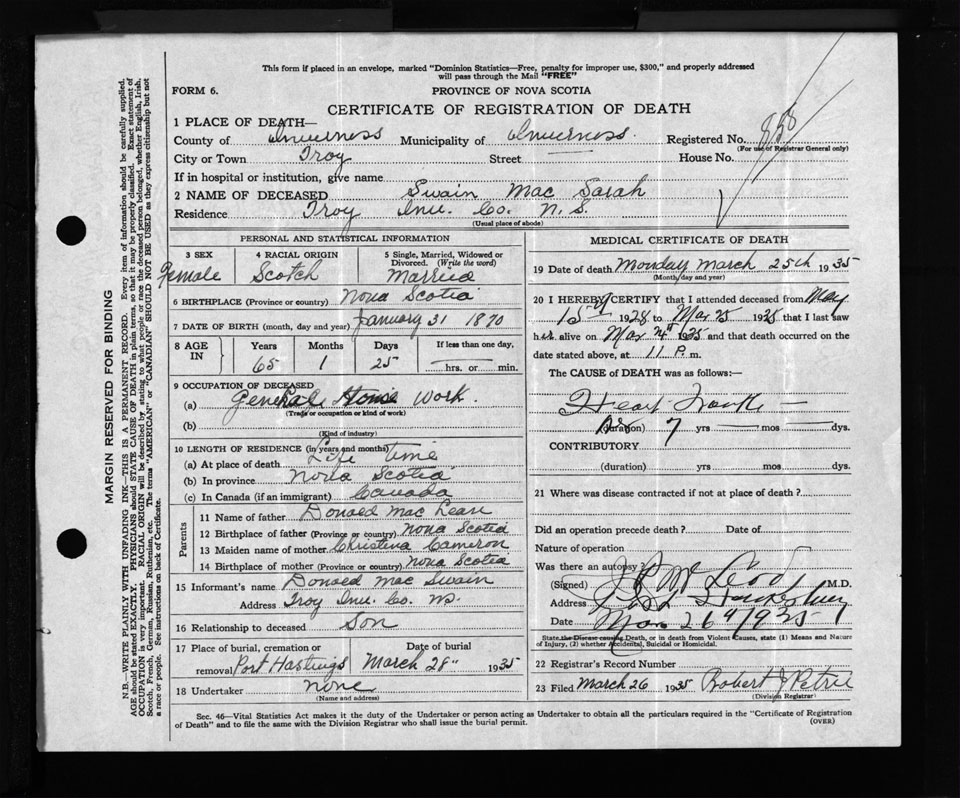 This form if placed in an envelope, marked "Dominion Statistics—Free, penalty for improper use, $300," and properly addressed
will pass through the Mail "FREE"
FORM 6.
PROVINCE OF NOVA SCOTIA
CERTIFICATE OF REGISTRATION OF DEATH
1 PLACE OF DEATH—
County of Inverness Municipality of Inverness. Registered No. 858
(For use of Registrar General only)
City or Town Troy Street — House No.
If in hospital or institution, give name
2 NAME OF DECEASED Swain Mac Sarah
Residence Troy Inv. Co. N. S.
(Usual place of abode)
PERSONAL AND STATISTICAL INFORMATION
3 SEX 4 RACIAL ORIGIN 5 Single, Married, Widowed or
Divorced. (Write the word)
Female Scotch Married
6 BIRTHPLACE (Province or country) Nova Scotia
7 DATE OF BIRTH (month, day and year) January 31 1870
8 AGE IN Years Months Days If less than one day,
65 1 25 hrs. or min.
9 OCCUPATION OF DECEASED
(a) General House Work.
(Trade or occupation or kind of work)
(b)
(Kind of industry)
10 LENGTH OF RESIDENCE (in years and months)
(a) At place of death Life Time
(b) In province Nova Scotia
(c) In Canada (if an immigrant) Canada
Parents
11 Name of father Donald Mac Lean
12 Birthplace of father (Province or country) Nova Scotia
13 Maiden name of mother Christena Cameron
14 Birthplace of mother (Province or country) Nova Scotia
15 Informant's name Donald Mac Swain
Address Troy Inv. Co. NS.
16 Relationship to deceased Son
17 Place of burial, cremation or Date of burial
removal Port Hastings March 28" 1935
18 Undertaker none
(Name and address)
MEDICAL CERTIFICATE OF DEATH
19 Date of death Monday March 25th 1935
(Month, day and year)
20 I HEREBY CERTIFY that I attended deceased from May
15 1928 to Mar 25 1935 that I last saw
her alive on Mar 24th 1935 and that death occurred on the
date stated above, at 11 P. m.
The CAUSE of DEATH was as follows:—
Heart —
(duration) 7 yrs — mos — dys.
CONTRIBUTORY
(duration) yrs. mos. dys.
21 Where was disease contracted if not at place of death?
Did an operation precede death? Date of
Nature of operation
Was there an autopsy?
(Signed) M.D.
Address Hawkesbury
Date Mar 26 1935
State the Disease causing Death, or in death from Violent Causes, state (1) Means and Nature
of Injury, (2) whether Accidental, Suicidal or Homicidal.
22 Registrar's Record Number
23 Filed March 26 1935 Robert J Petrie
(Division Registrar)
Sec. 46—Vital Statistics Act makes it the duty of the Undertaker or person acting as Undertaker to obtain all the particulars required in the "Certificate of Registration
of Death" and to file the same with the Division Registrar who shall issue the burial permit.
(OVER)
MARGIN RESERVED FOR BINDING
N.B.—WRITE PLAINLY WITH UNFADING INK—THIS IS A PERMANENT RECORD. Every item of information should be carefully supplied.
AGE should be stated EXACTLY. PHYSICIANS should STATE CAUSE OF DEATH in plain terms, so that it may be properly classified. Exact statement of
OCCUPATION is very important. RACIAL ORIGIN will be described by stating to what people or race the deceased person belonged, whether English, Irish,
Scotch, French, German, Russian, Ruthenian, etc. The terms "AMERICAN" or "CANADIAN" SHOULD NOT BE USED as they express citizenship but not
a race or people. See instructions on back of Certificate.